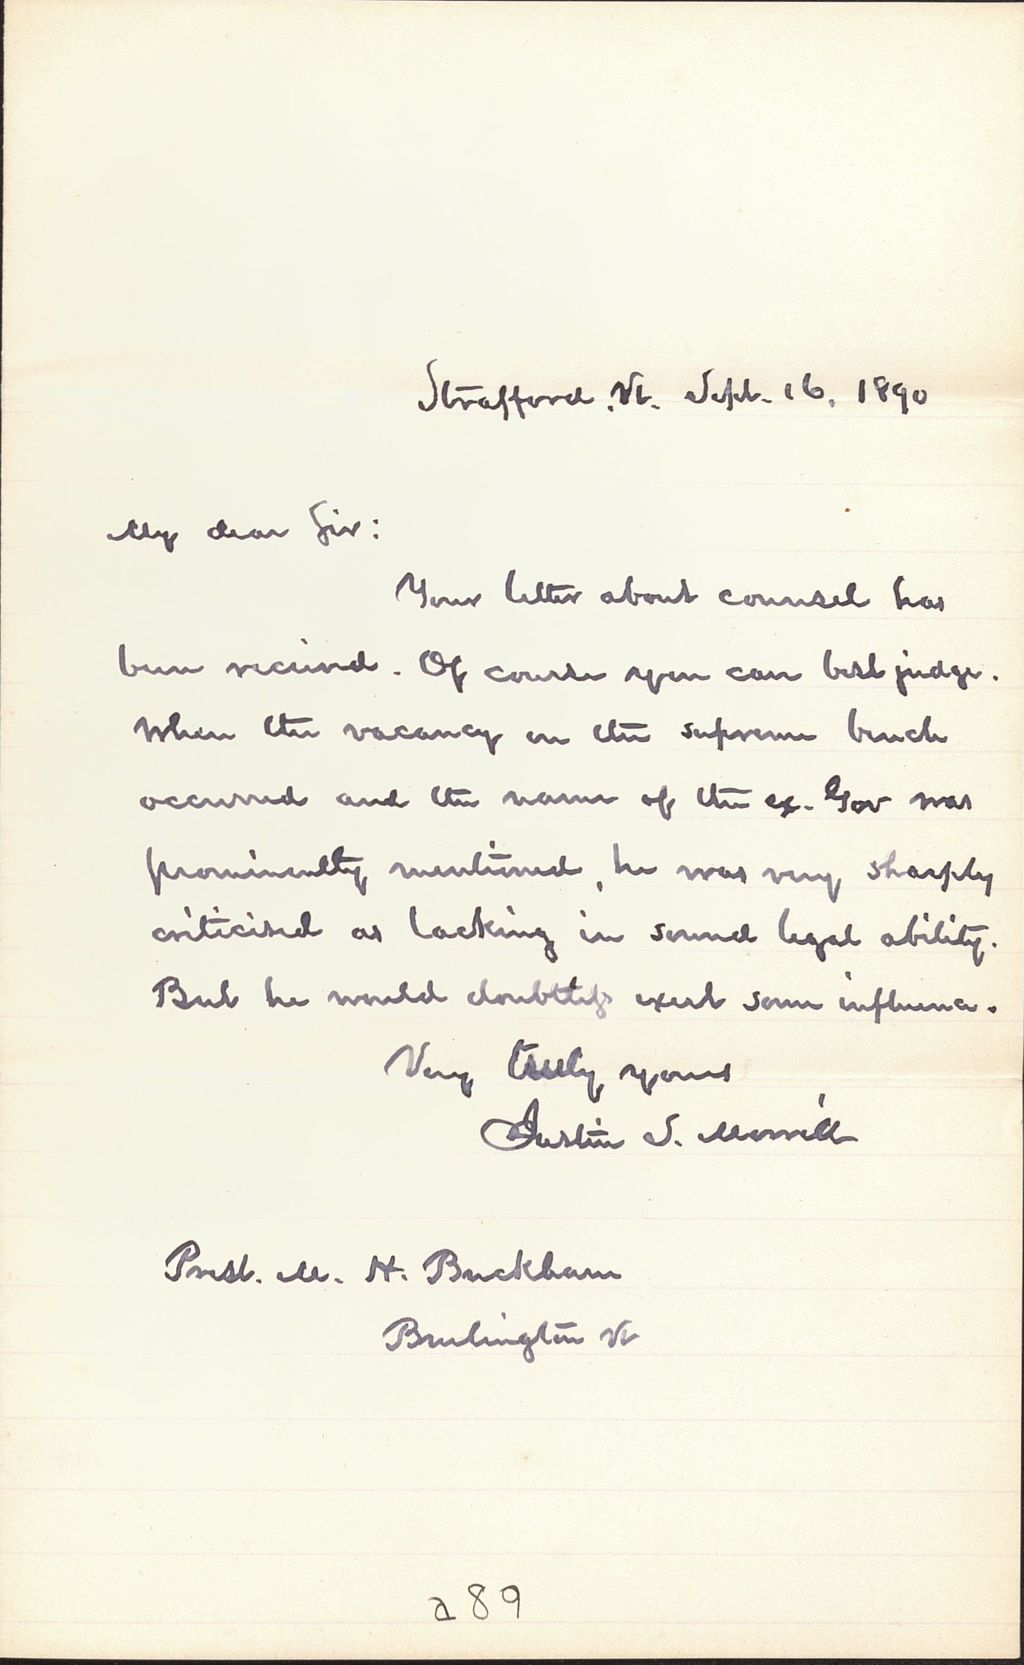 Strafford, Vt. Sept. 16, 1890
My dear Sir:
Your letter about counsel has
been received. Of course you can best judge.
When the vacancy on the supreme bench
occurred and the name of the ex. Gov was
prominently mentioned, he was very sharply
criticised as lacking in sound legal ability.
But he would doubtless exert some influence.
Very truly yours
Justin S. Morrill
Prest. M. H. Buckham
Burlington Vt
a89